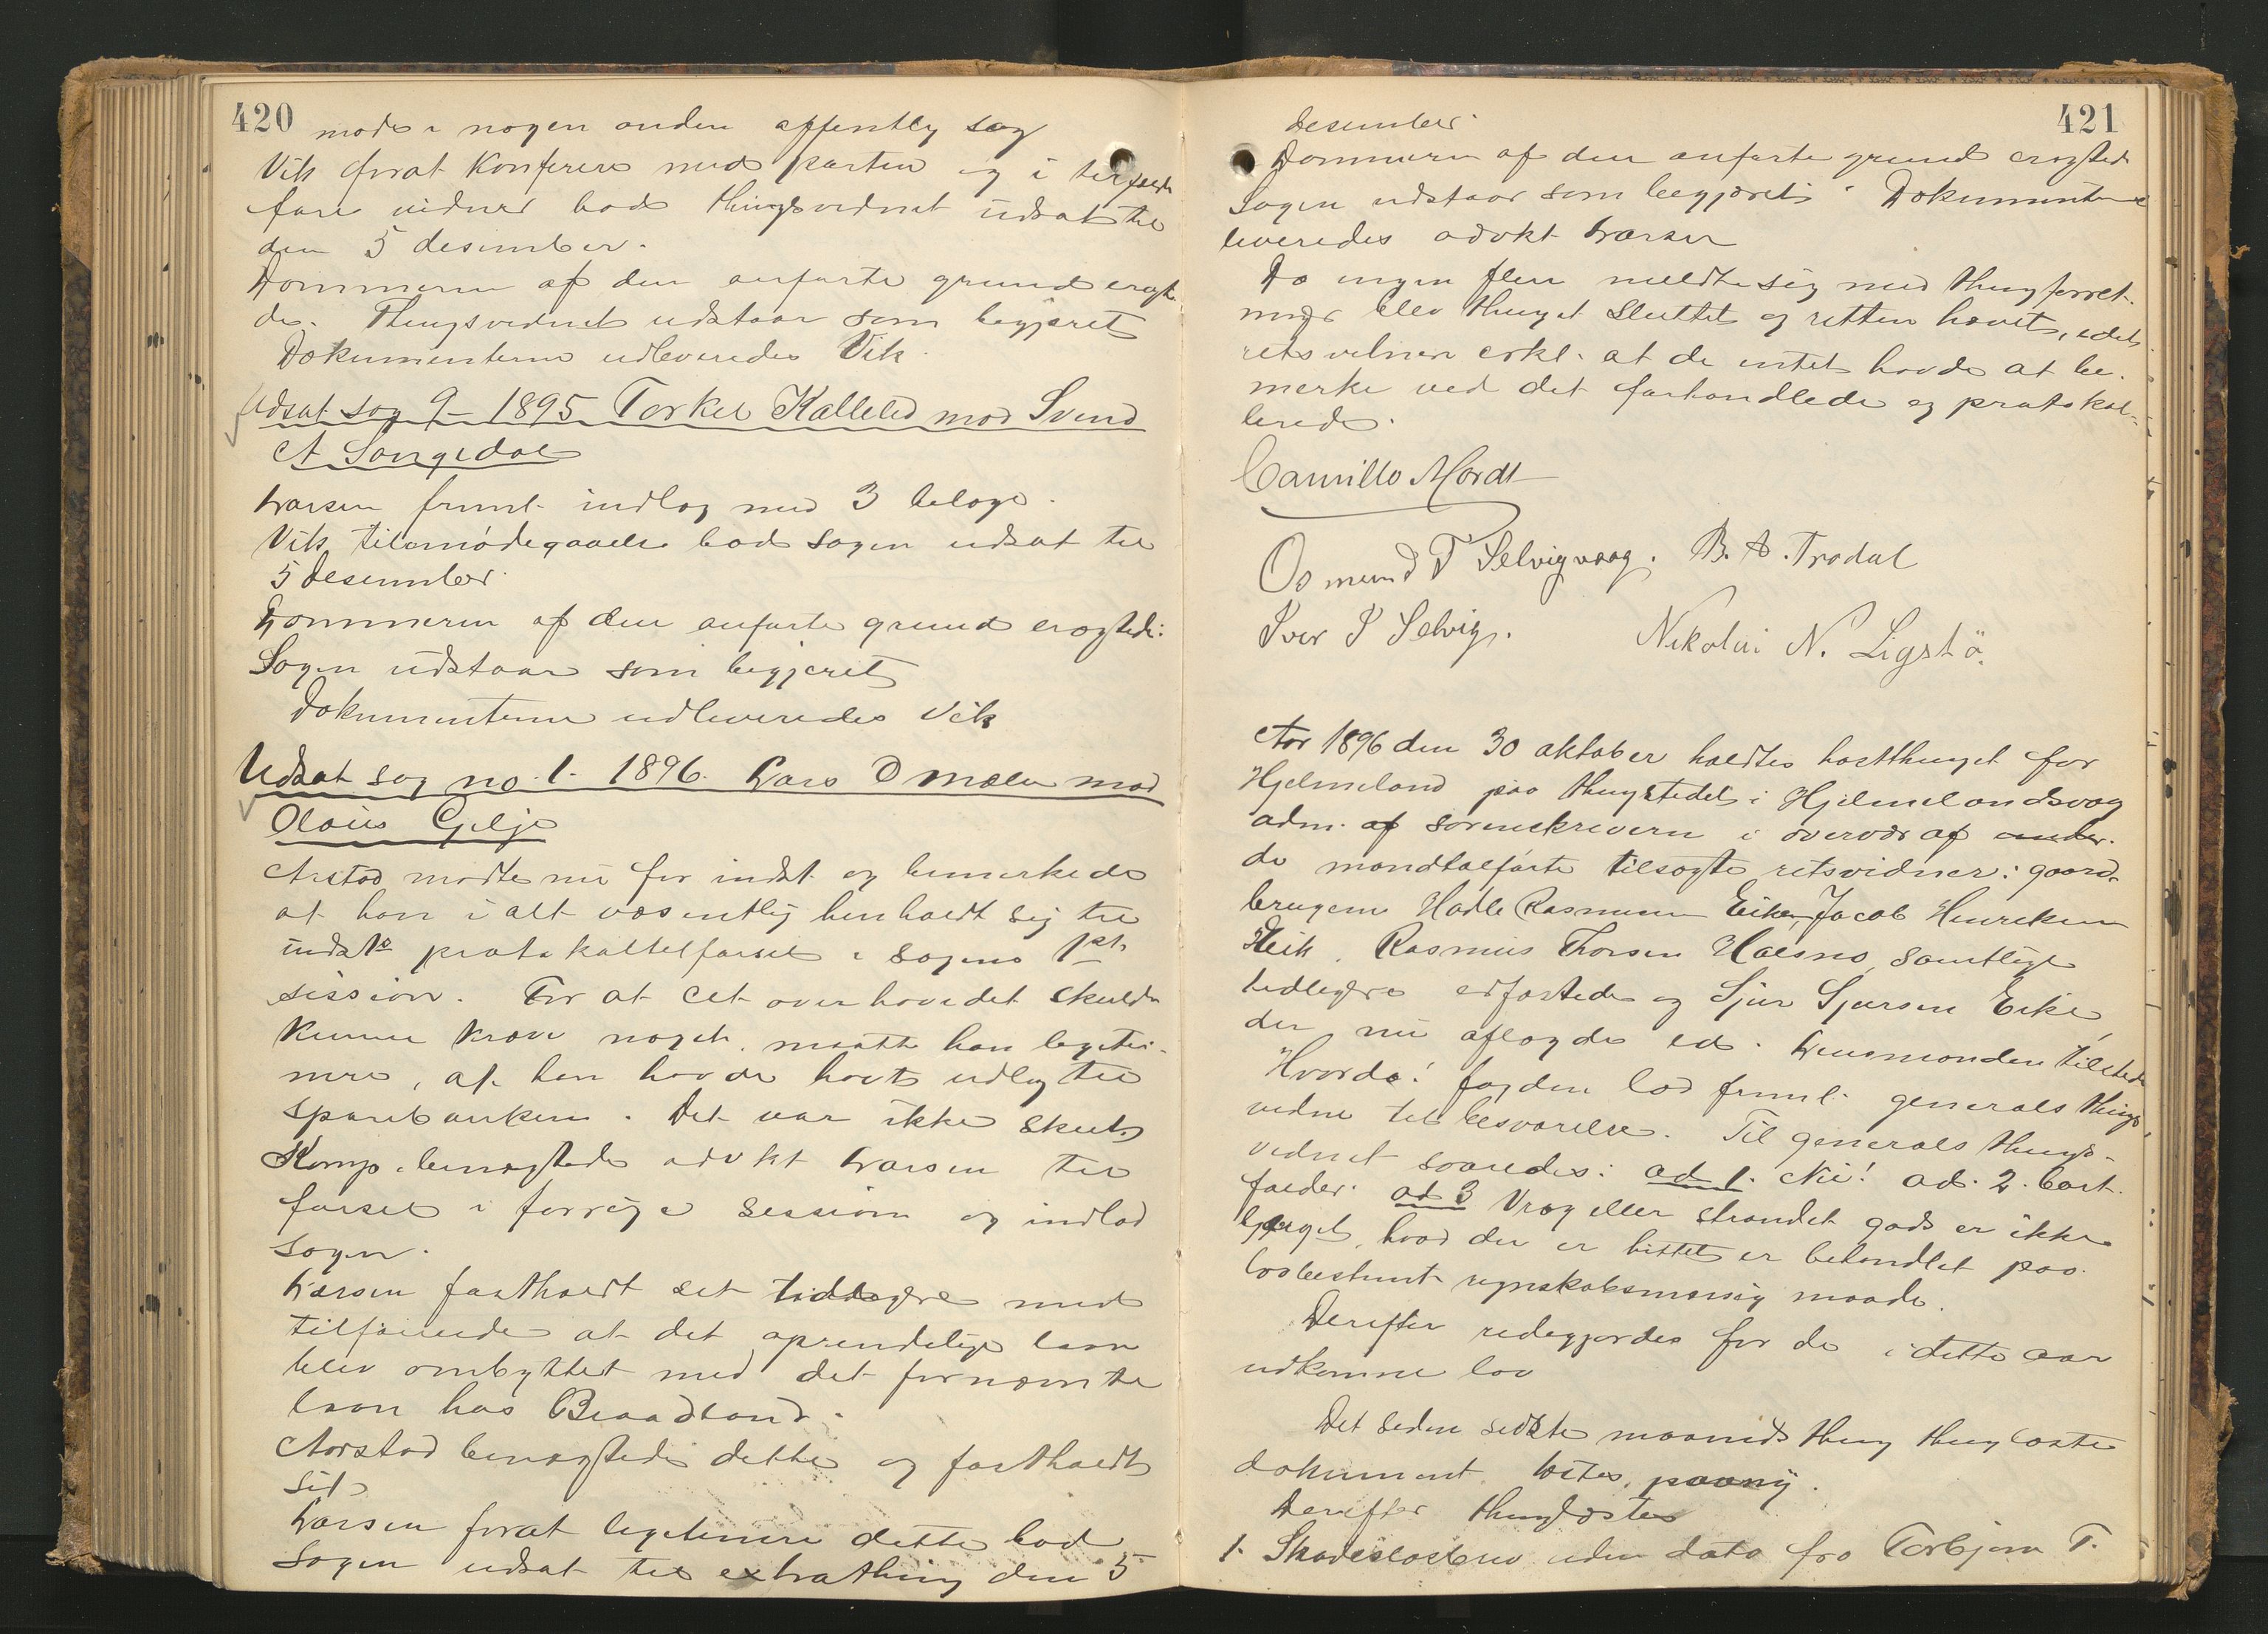 420
møde i nogen anden offentlig sag
Vik forat konferere med parten og i tilfælde
føre vidner bad thingsvidnet udsat til
den 5 desember.
Dommeren af den anførte grund eragte-
de: Thingsvidnet udstaar som begjæret
Dokumenterne udleveredes Vik.
Udsat sag 9 - 1895 Torkel Kalleli mod Svend
A Songedal
Larsen freml. indlæg med 3 bilage.
Vik til imødegaaelse bad sagen udsat til
5 desember.
Dommeren af den anførte grund eragtede:
Sagen udstaar som begjæret
Dokumenterne udleveredes Vik
Udsat sag no. 1. 1896. Lars O Mælen mod
Olaus Gilje
Arstad mødte nu for indst. og bemerkede
at han i alt væsentlig henholdt sig til
indst. protokoltilførsel i sagens 1st.
session. For at cit. overhovedet skulde
kunne kræve noget, maatte han legiti-
mere, at han havde havt udlæg til
sparebanken. Det var ikke skeet.
Komp. benegtede advkt Larsens til
førsel i forrige session og indlod
sagen.
Larsen fastholdt sit tidligere med
tilføiende at det oprindelige laan
blev ombyttet med det fornævnte
laan hos Braadland.
Aarstad benegtede dette og fastholdt
sit
Larsen forat legitimere dette bad
sagen udsat til extrathing den 5
421
desember.
Dommeren af den anførte grund eragtede
Sagen udstaar som begjæret. Dokumenterne
leveredes advkt Larsen
Da ingen flere meldte sig med thingforret-
ninger blev thinget sluttet og retten hævet, idet
retsvidnene erkl. at de intet havde at be-
merke ved det forhandlede og protokol-
lerede.
Camillo Mordt
Osmund T Selvigvaag. B. A. Trodal
Iver I Selvig. Nikolai N. Ligstö.
Aar 1896 den 30 oktober holdtes høstthinget for
Hjelmeland paa thingstedet i Hjelmelandsvaag
adm. af sorenskriveren i overvær af under-
de mandtalførte tilsagte retsvidner: gaard-
brugerne Hadle Rasmusen Eike, Jacob Henriksen
Steik, Rasmus Thorsen Halsnø, samtlige
tidligere edfæstede og Sjur Sjursen Eike,
der nu aflagde ed. Lensmanden tilstede
Hvorda: fogden lod freml. generals things
vidne til besvarelse. Til generals things-
vidnet svaredes: ad 1. Nei! ad. 2. bort-
falder. ad 3 Vrag eller strandet gods er ikke
bjerget, hvad der er hittet er behandlet paa
lovbestemt regnskabsmæssig maade.
Derefter redegjordes for de i dette aar
udkomne lov
Det siden sidste maaneds thing thinglæste
dokument læstes paany.
Derefter thinglæstes
1. Skadesløsbrev uden dato fra Torbjørn T.